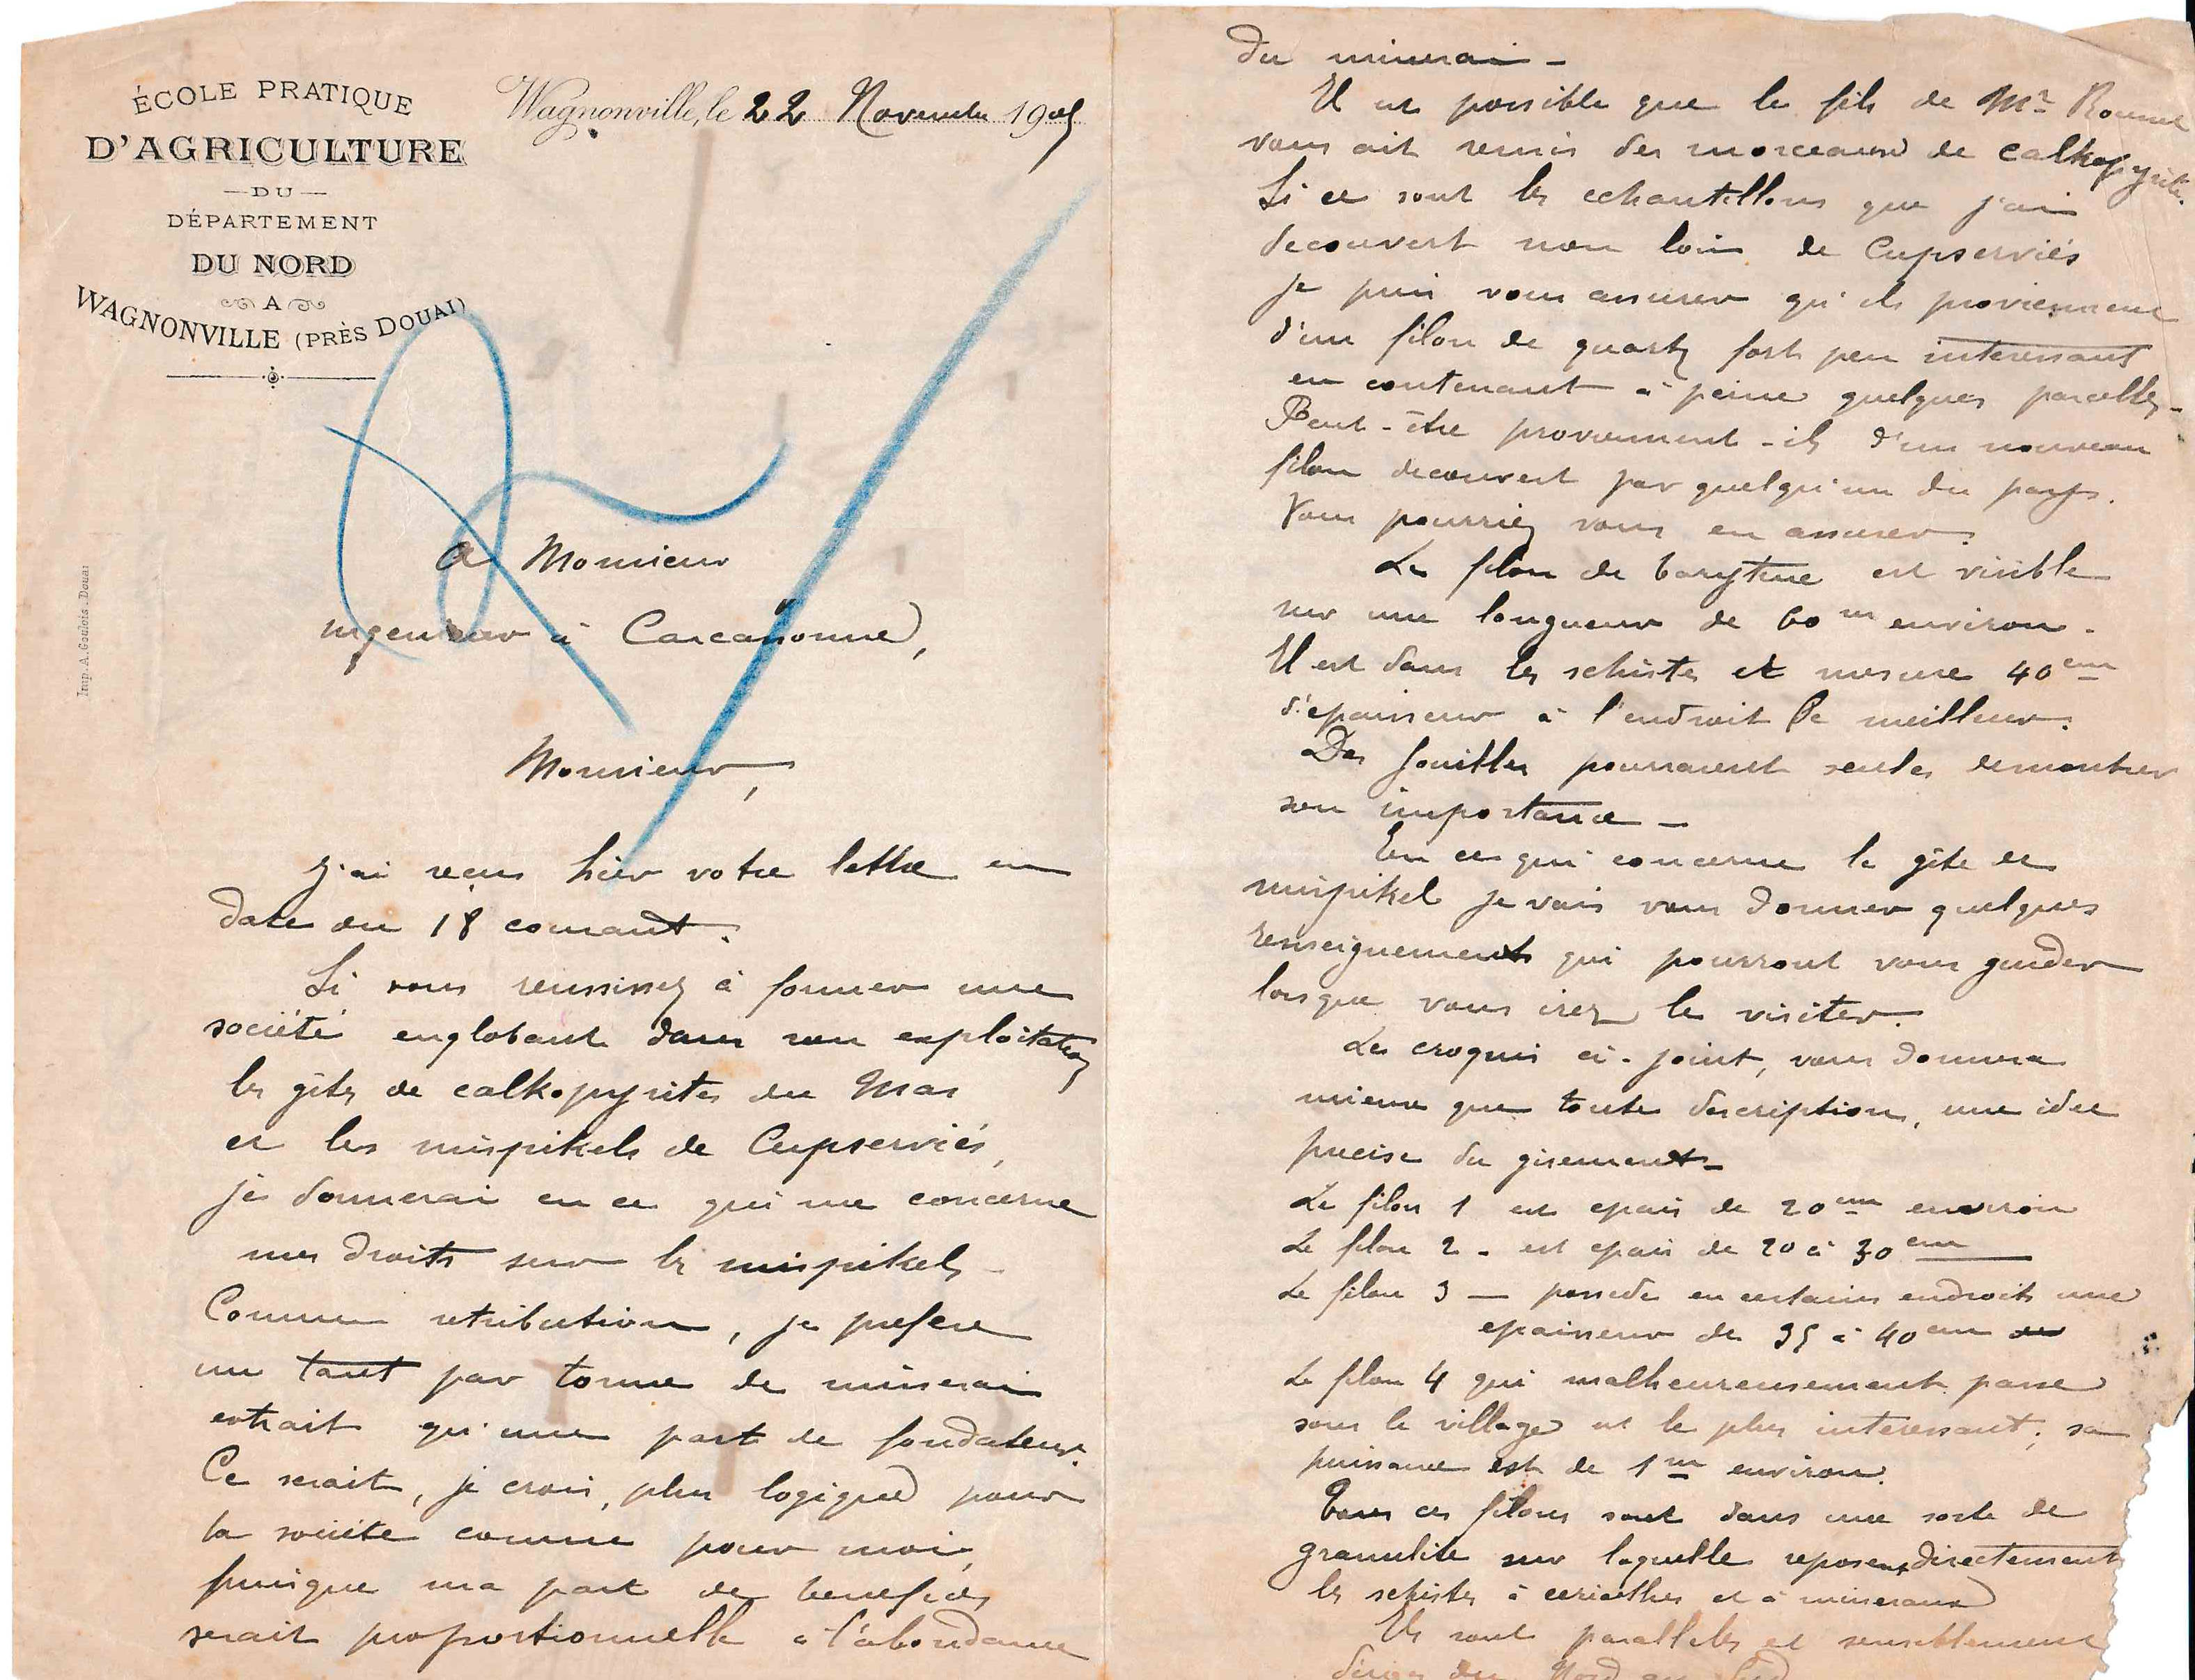 ÉCOLE PRATIQUE
D'AGRICULTURE
— DU —
DÉPARTEMENT
DU NORD
A
WAGNONVILLE (PRÈS DOUAI)
Wagnonville, le 22 Novembre 1905
Imp. A. Goulois. Douai
A Monsieur
ingenieur à Carcassonne,
Monsieur,
J'ai reçu hier votre lettre en
date du 18 courant.
Si vous reussissez à former une
société englobant dans son exploitation
les gites de calkopyrites du Mas
et les mispikels de Cupserviés,
je donnerai en ce qui me concerne
mes droits sur les mispikels -
Comme retribution, je prefere
un tant par tonne de minerai
extrait qu'une part de fondateur.
Ce serait, je crois, plus logique pour
la société comme pour moi,
puisque ma part de benefices
serait proportionnelle à l'abondance
du minerai -
Il est possible que le fils de Mr
vous ait remis des morceaux de calkopyrite.
Si ce sont les echantillons que j'ai
decouvert non loin de Cupserviés
je puis vous assurer qu'ils proviennent
d'un filon de quartz fort peu interessant
en contenant à peine quelques parcelles -
Peut-être proviennent-ils d'un nouveau
filon decouvert par quelqu'un du pays.
Vous pourriez vous en assurer.
Le filon de barytine est visible
sur une longueur de 60 m environ.
Il est dans les schistes et mesure 40 cm
d'epaisseur à l'endroit le meilleur.
Des fouilles pourraient seules demontrer
son importance -
En ce qui concerne le gite de
mispikel je vais vous donner quelques
renseignements qui pourront vous guider
lorsque vous irez le visiter.
Le croquis ci-joint, vous donnera
mieux que toute description, une idee
precise du gisement -
Le filon 1 est epais de 20 cm environ
Le filon 2 - est epais de 20 à 30 cm
Le filon 3 — possede en certains endroits une
epaisseur de 35 à 40 cm
Le filon 4 qui malheureusement passe
sous le village est le plus interessant; sa
puissance est de 1 m environ.
Tous ces filons sont dans une sorte de
granulite sur laquelle reposent directement
les schistes à et à mineraux
Ils sont paralleles et sensiblement
diriges du Nord au Sud